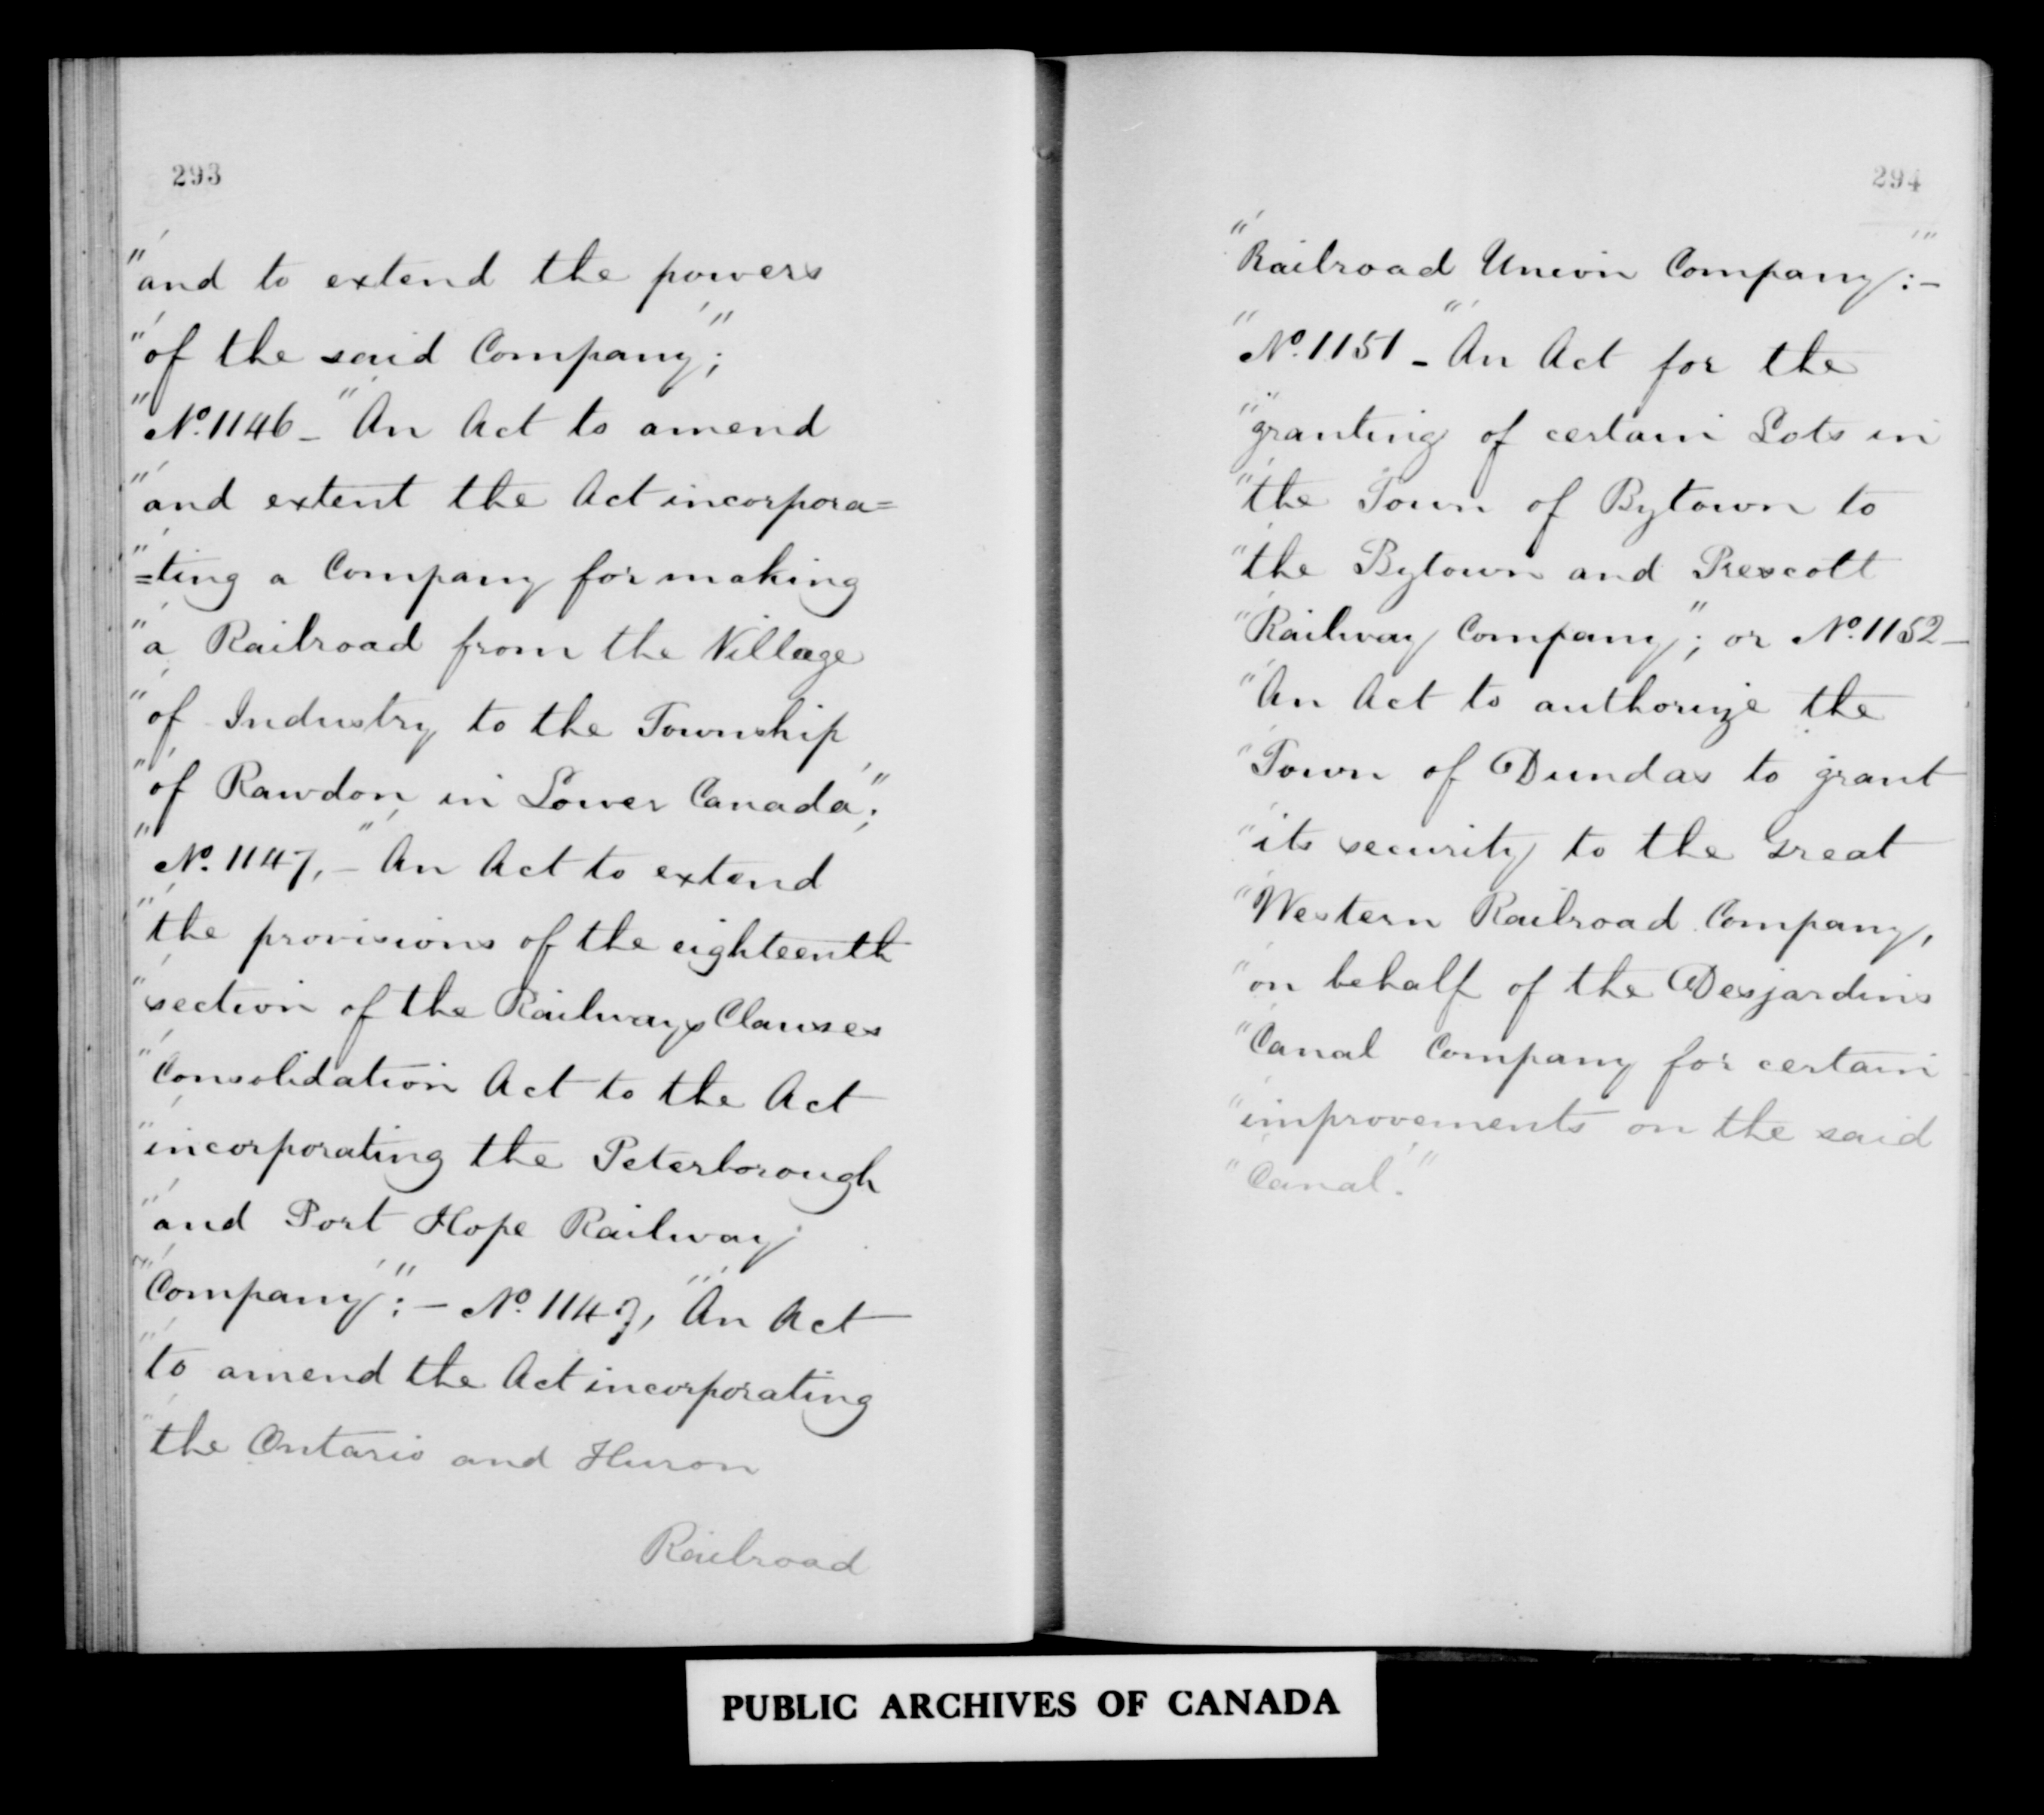 293
"'and to extend the powers
"'of the said Company'";
"No. 1146 _ "'An Act to amend
"'and extent the Act incorpora=
"'=ting a Company for making
"'a Railroad from the Village
"'of Industry to the Township
"'of Rawdon in Lower Canada'";
"No. 1147, - "'An Act to extend
"'the provisions of the eighteenth
"'section of the Railways Clauses
"'Consolidation Act to the Act
"'incorporating the Peterborough
"'and Port Hope Railway
"'Company'": - No. 1147, "'An Act
"'to amend the Act incorporating
"'the Ontario and Huron
Railroad
294
"'Railroad Union Company'": -
"No. 1151 - "'An Act for the
"'granting of certain Lots in
"'the Town of Bytown to
"'the Bytown and Prescott
"'Railway Company"; or No. 1152 -
"'An Act to authorize the
"'Town of Dundas to grant
"'its security to the Great
"'Western Railroad Company,
"'on behalf of the Desjardins
"'Canal Company for certain
"'improvements on the said
"'Canal.'"
PUBLIC ARCHIVES OF CANADA